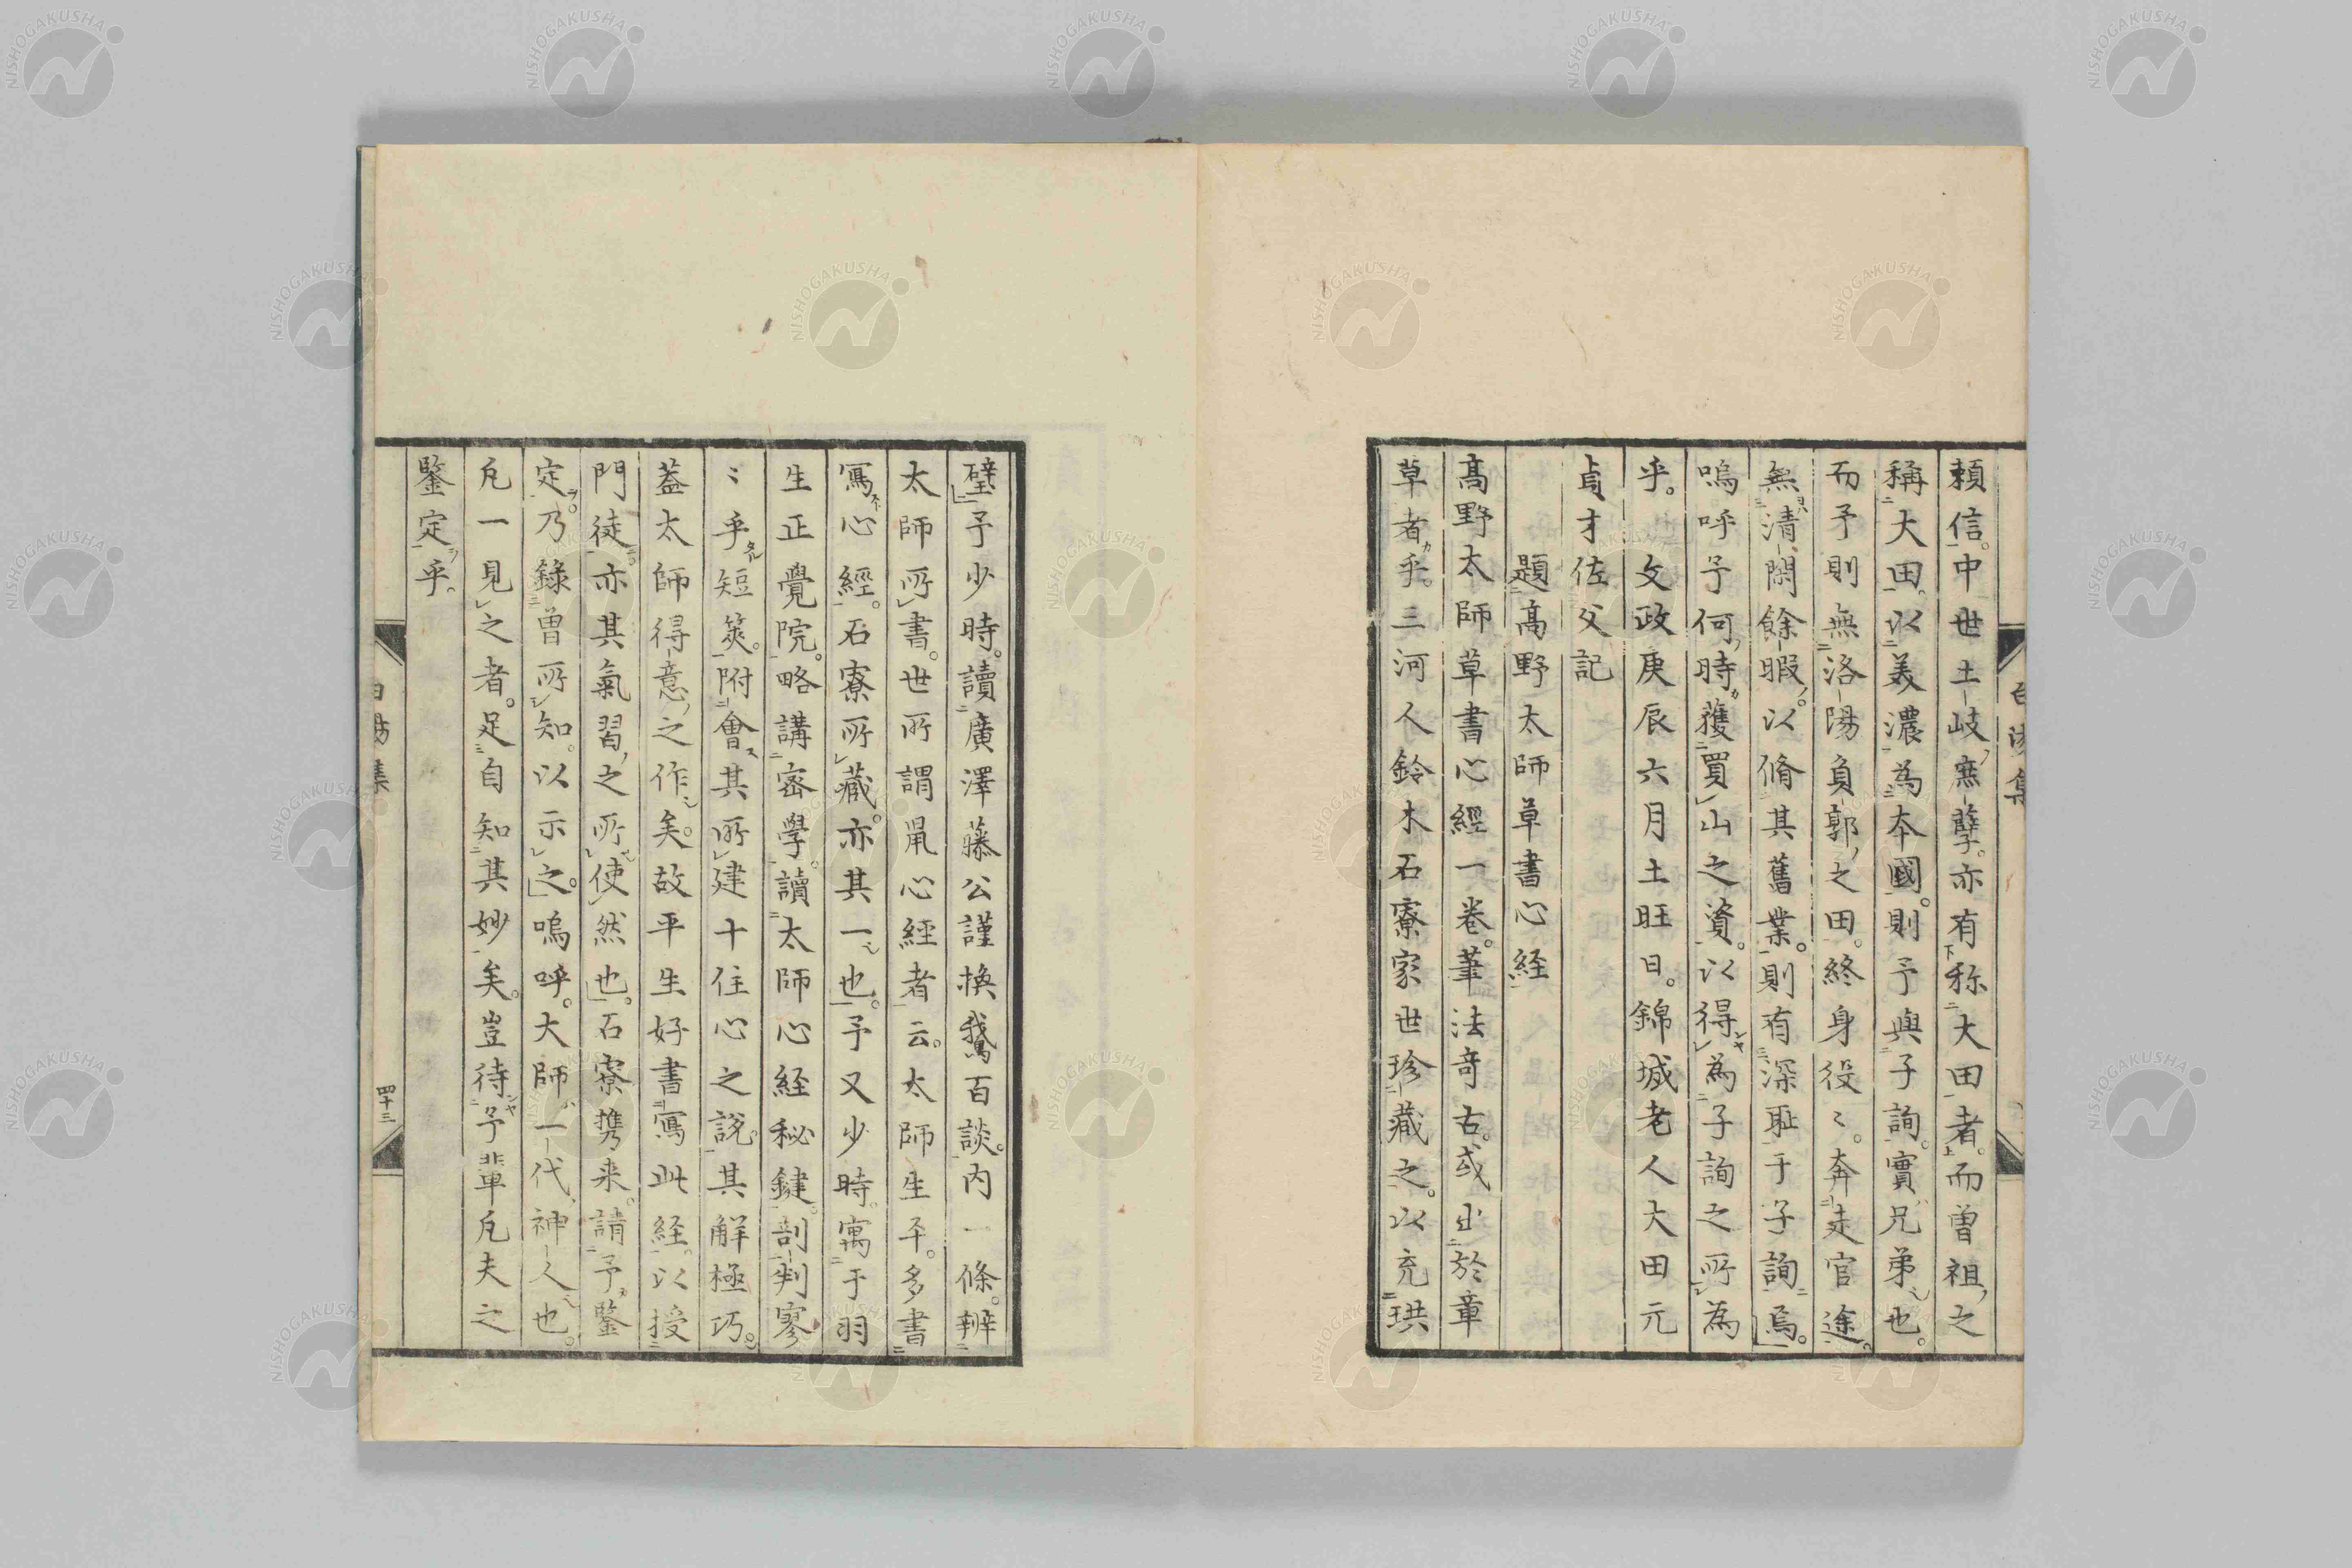 頼信。中世土岐庶孽。亦有称大田者。而曽祖之
稱大田。以美濃為本國。則予與子詢。實兄弟也。
而予則無洛陽負郭之田。終身役〻。奔走官途。
無清閑餘暇。以脩其舊業。則有深耻于子詢焉。
嗚呼予何時獲買山之資。以得為子詢之所為
乎。　文政庚辰六月土旺日。錦城老人大田元
貞才佐父記
題高野太師草書心経
高野太師草書心經一卷。筆法奇古。或出於章
草者乎。三河人鈴木石寮家世珍藏之。以充珙
璧。予少時。讀廣澤藤公謹換鵞百談。内一條。辨
太師所書。世所謂鼠心經者云。太師生平。多書
寫心經。石寮所藏。亦其一也。予又少時。寓于羽
生正覺院。略講密學。讀太師心経秘鍵。剖判寥
〻乎短策。附會其所建十住心之説。其解極巧。
蓋太師得意之作矣。故平生好書寫此経。以授
門徒。亦其氣習之所使然也。石寮携来。請予鑒
定。乃錄曽所知。以示之。嗚呼。大師一代神人也。
凡一見之者。足自知其妙矣。豈待予輩凡夫之
鑒定乎。
四十三